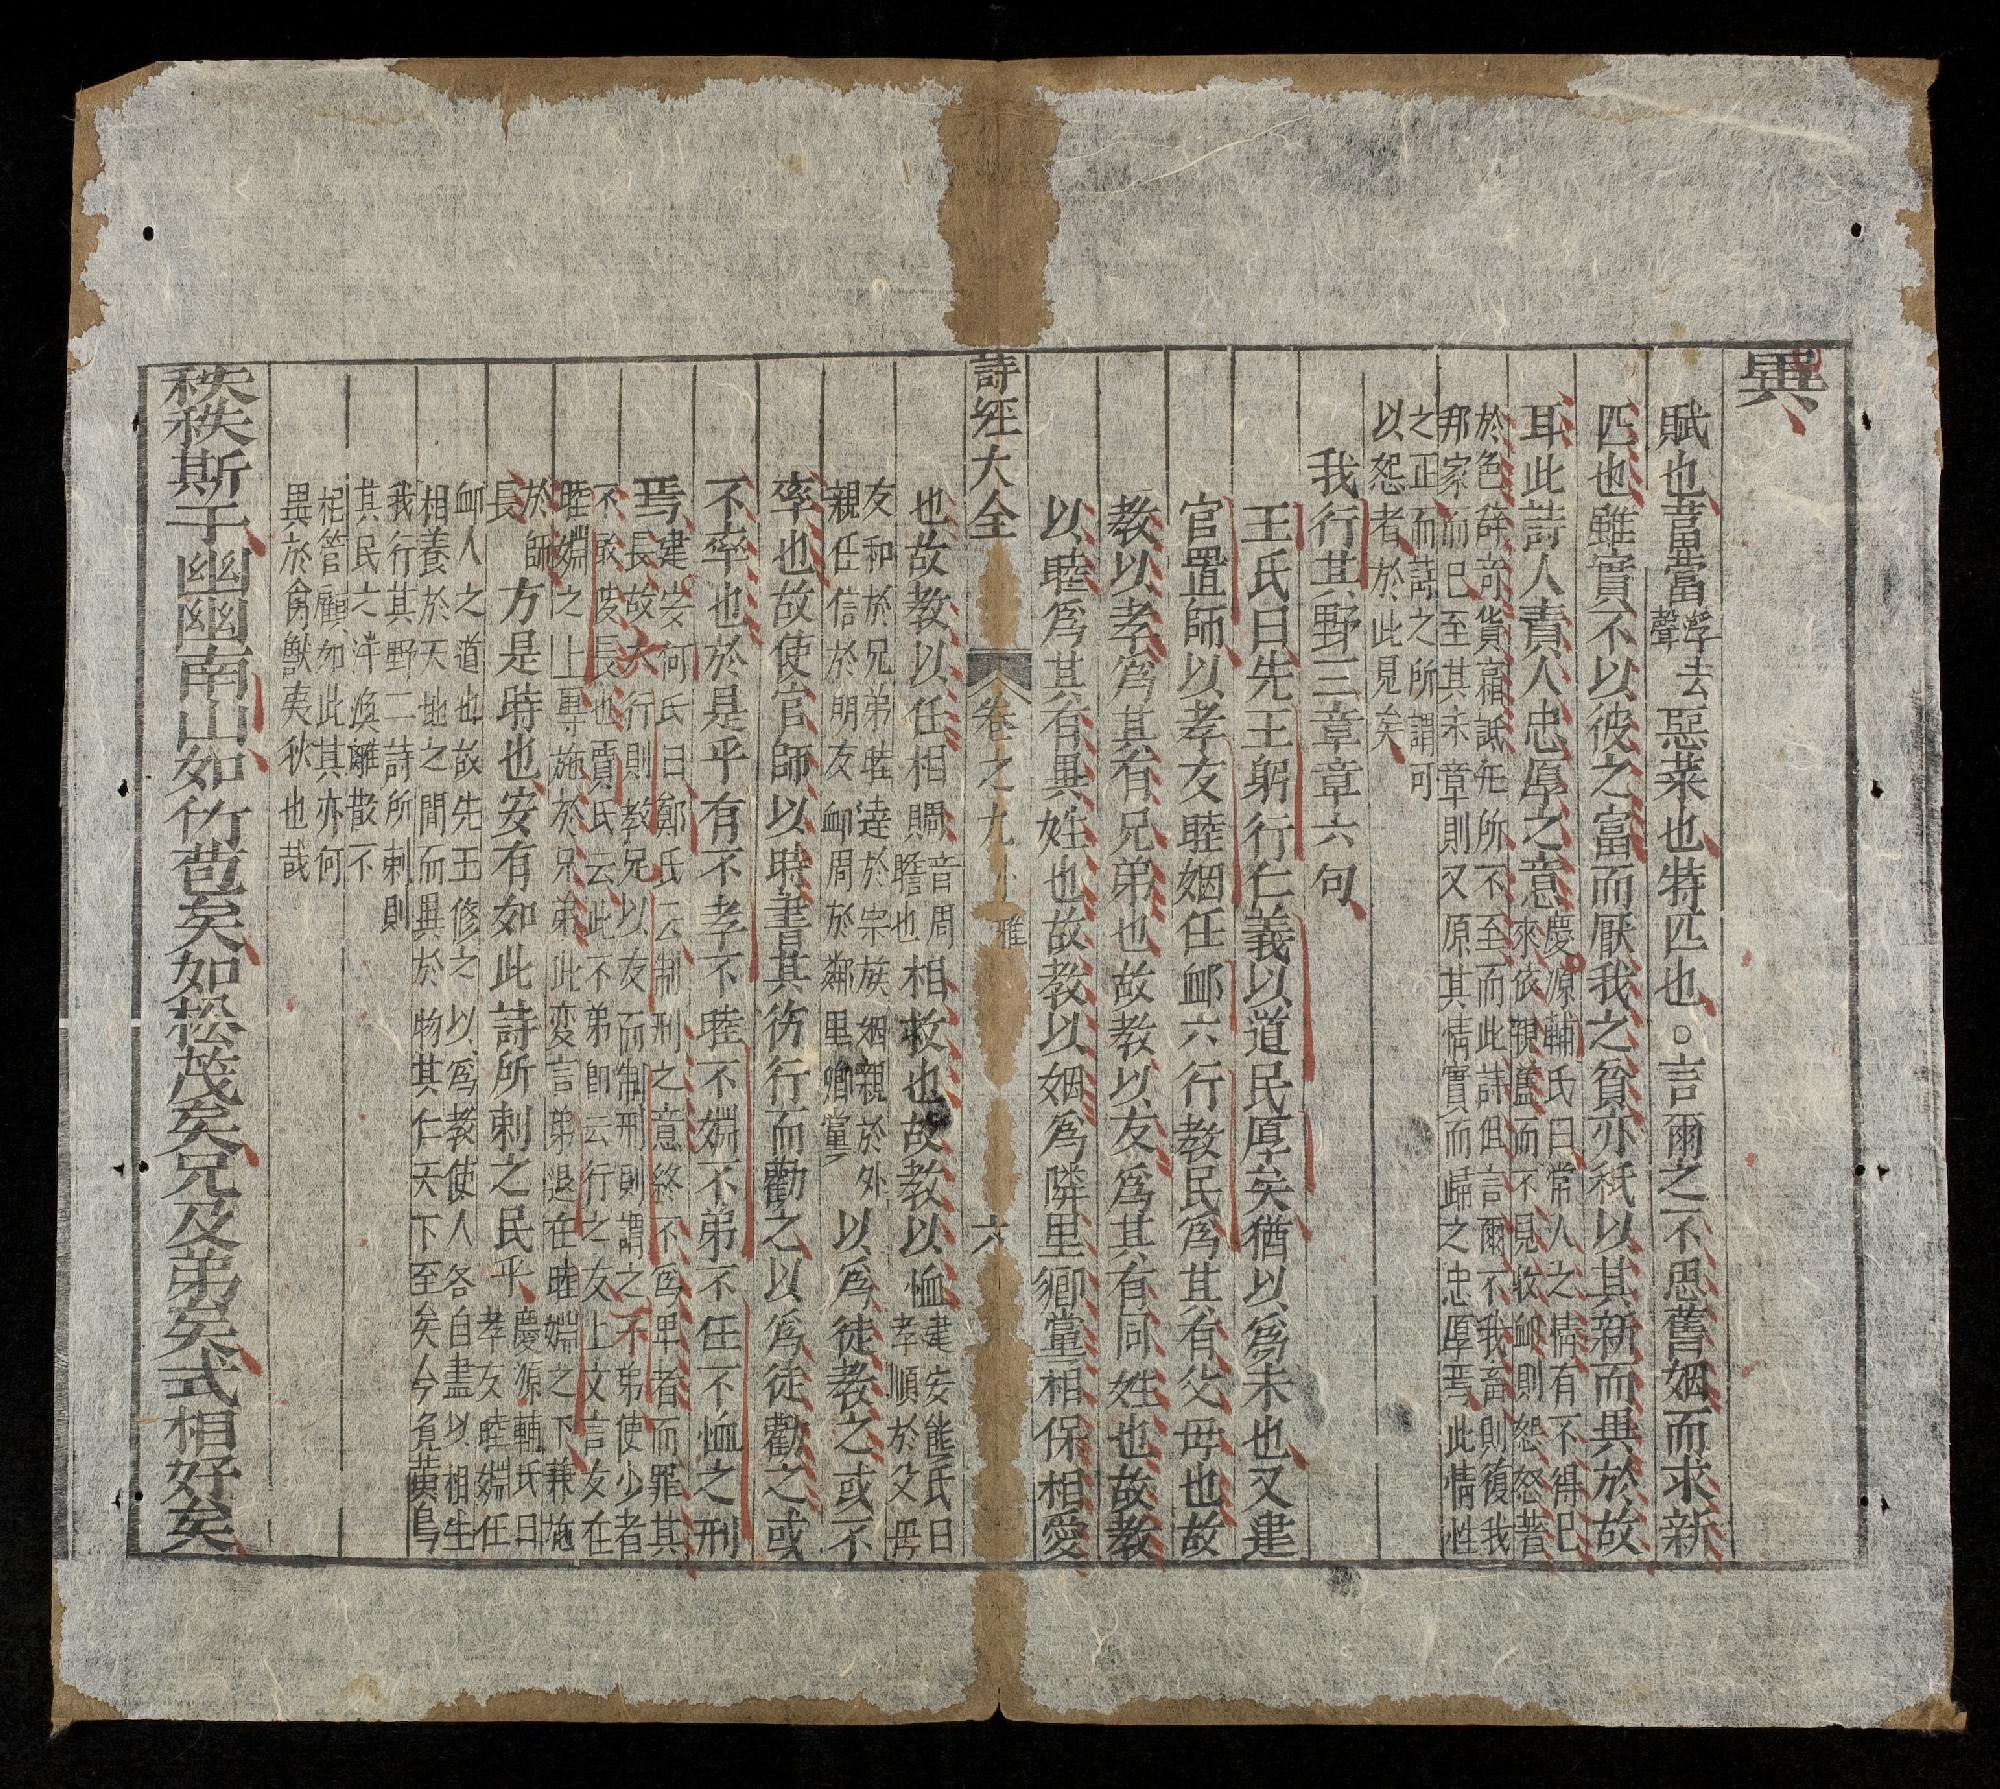 異
賦也葍䔰孚去聲惡菜也特匹也○言爾之不思舊姻而求新
匹也雖實不以彼之富而厭我之貧亦秪以其新而異於故
耳此詩人責人忠厚之意慶源輔氏曰常人之情有不得已
來依親舊而不見收卹則怨怒著
於色辭
所不至而此詩但言爾不我畜則復我
邦家而已至其末章則又原其情實而歸之忠厚焉此情性
之正而詩之所謂可
以怨者於此見矣
我行其野三章章六句
王氏曰先王躬行仁義以道民厚矣猶以爲未也又建
官置師以孝友睦姻任卹六行教民爲其有父母也故
教以孝爲其有兄弟也故教以友爲其有同姓也故教
以睦爲其有異姓也故教以姻爲隣里鄉黨相保相愛
詩經大全 卷之九 小雅 六
也故教以任相賙音周贍也相救也故教以恤建安熊氏曰
孝順於父母
友和於兄弟睦達於宗族姻親於外
親任信於朋友卹周於鄰里鄉黨
以爲徒教之或不
率也故使官師以時書其德行而勸之以爲徒勸之或
不率也於是乎有不孝不睦不婣不弟不任不恤之刑
焉建安何氏曰鄭氏云制刑之意終不爲卑者而罪其
長長故六行則教兄以友而制刑則謂之不弟使少者
不敢陵長也賈氏云此不弟卽云行之友上文言友在
睦婣之上專施於兄弟此変言弟退在睦婣之下兼施
於師
長
方是時也安有如此詩所刺之民乎慶源輔氏曰
孝友睦婣任
卹人之道也故先王修之以爲教使人各自盡以相生
相養於天地之間而異於物其仁天下至矣今觀黃鳥
我行其野二詩所刺則
其民之泮渙離散不
相管顧如此其亦何
異於禽獸夷狄也哉
秩秩斯干幽幽南山如竹苞矣如松茂矣兄及弟矣式相好矣